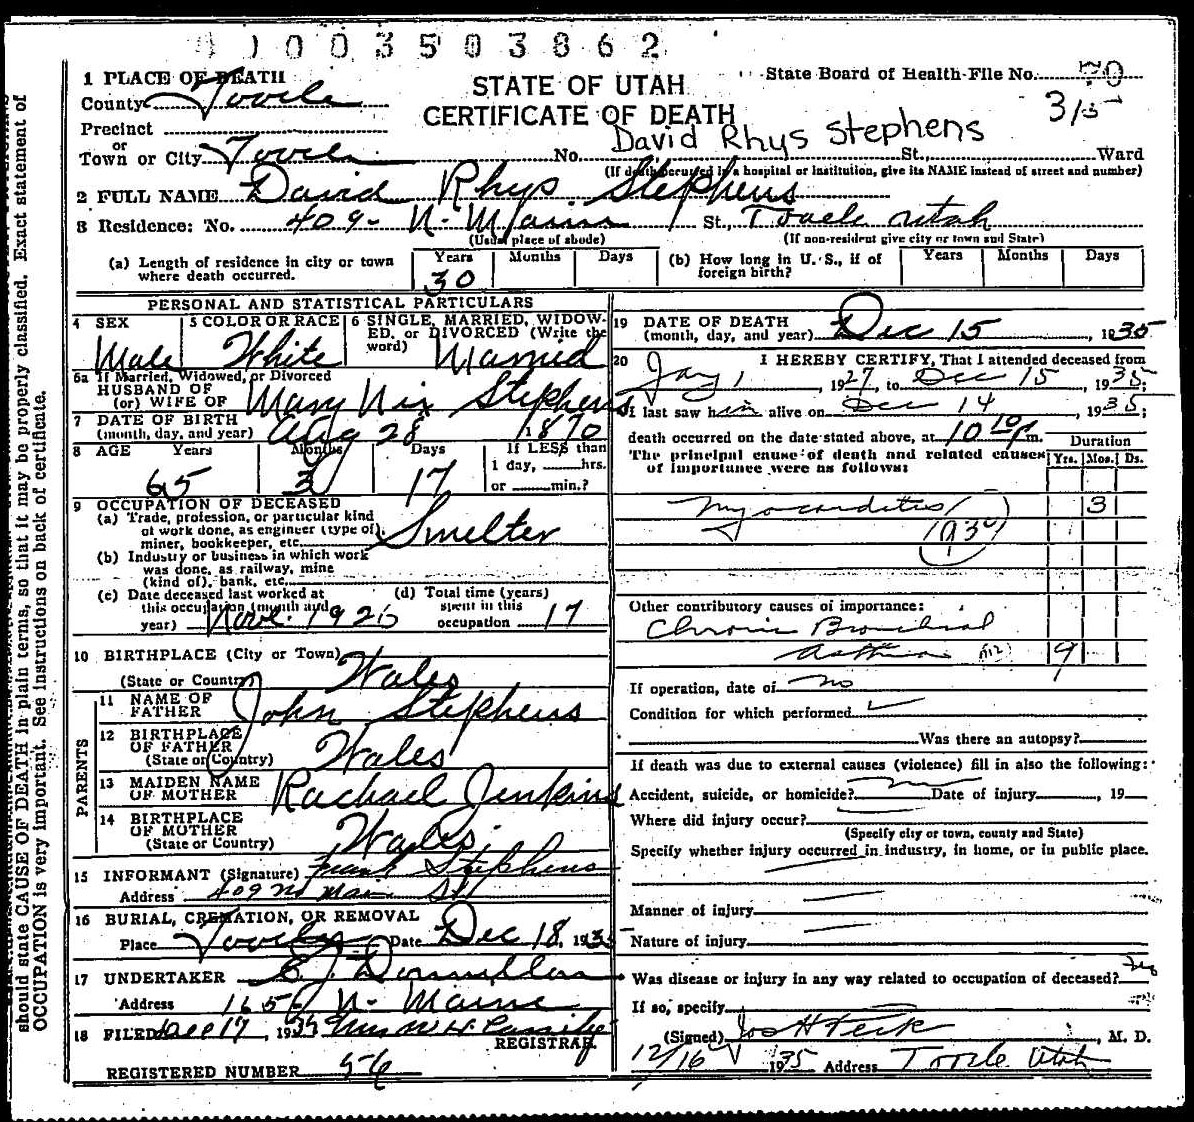 1003503862
1 PLACE OF DEATH
County Tooele
Precinct
or
Town or City Tooele No. St., Ward
STATE OF UTAH
CERTIFICATE OF DEATH
State Board of Health-File No. 70
315
David Rhys Stephens
(If death occurred in a hospital or institution, give its NAME instead of street and number)
2 FULL NAME David Rhys Stephens
3 Residence: No. 409 - N. Main St., Tooele Utah
(Usual place of abode) (If non-resident give city or town and State)
(a) Length of residence in city or town where death occurred. Years 30 Months Days
(b) How long in U. S., if of foreign birth? Years Months Days
PERSONAL AND STATISTICAL PARTICULARS
4 SEX Male
5 COLOR OR RACE White
6 SINGLE, MARRIED, WIDOWED, or DIVORCED (Write the word) Married
6a If Married, Widowed, or Divorced
HUSBAND OF
(or) WIFE OF Mary Nix Stephens
7 DATE OF BIRTH
(month, day, and year) Aug 28 1870
8 AGE Years 65 Months 3 Days 17
If LESS than
1 day, hrs.
or min.?
9 OCCUPATION OF DECEASED
(a) Trade, profession, or particular kind
of work done, as engineer (type of)
miner, bookkeeper, etc. Smelter
(b) Industry or business in which work
was done, as railway, mine
(kind of), bank, etc.
(c) Date deceased last worked at
this occupation (month and
year) Nov. 1926
(d) Total time (years)
spent in this
occupation 17
10 BIRTHPLACE (City or Town)
(State or Country) Wales
PARENTS
11 NAME OF
FATHER John Stephens
12 BIRTHPLACE
OF FATHER
(State or Country) Wales
13 MAIDEN NAME
OF MOTHER Rachael Jenkins
14 BIRTHPLACE
OF MOTHER
(State or Country) Wales
15 INFORMANT (Signature) Frank Stephens
Address 409 No Main St
16 BURIAL, CREMATION, OR REMOVAL
Place Tooele Date Dec 18, 1935
17 UNDERTAKER
Address N. Main
18 FILED Dec 17, 1935 Mrs W. H.
REGISTRAR
REGISTERED NUMBER 56
19 DATE OF DEATH
(month, day, and year) Dec 15, 1935
20 I HEREBY CERTIFY, That I attended deceased from
Jan 1, 1927, to Dec 15, 1935;
I last saw him alive on Dec 14, 1935;
death occurred on the date stated above, at 10 10 p m.
The principal cause of death and related causes
of importance were as follows:
Duration
Yrs. Mos. Ds.
Myocarditis 3
Other contributory causes of importance:
Chronic Bronchial
asthma (112) 9
If operation, date of no
Condition for which performed
Was there an autopsy?
If death was due to external causes (violence) fill in also the following:
Accident, suicide, or homicide? Date of injury, 19
Where did injury occur?
(Specify city or town, county and State)
Specify whether injury occurred in industry, in home, or in public place.
Manner of injury
Nature of injury
Was disease or injury in any way related to occupation of deceased? No
If so, specify
(Signed) Jos H Peck, M. D.
12/16 1935 Address Tooele Utah
should state CAUSE OF DEATH in plain terms, so that it may be properly classified. Exact statement of
OCCUPATION is very important. See instructions on back of certificate.